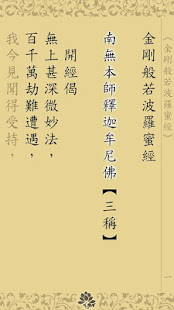 《金剛般若波羅蜜經》
金剛般若波羅蜜經
南無本師釋迦牟尼佛【三稱】
開經偈
無上甚深微妙法，
百千萬劫難遭遇，
我今見聞得受持，
一